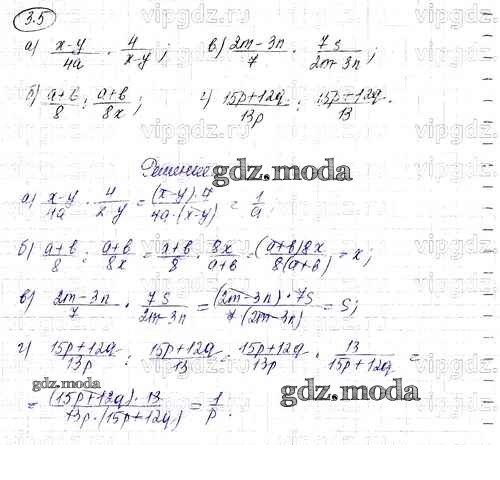 3.5
а) x-y/4a · 4/x-y; в) 2m-3n/7 · 7s/2m-3n;
б) a+b/8 : a+b/8x; г) 15p+12q/13p : 15p+12q/13.
Решение
gdz.moda
а) x-y/4a · 4/x-y = (x-y)·4/4a·(x-y) = 1/a;
б) a+b/8 : a+b/8x = a+b/8 · 8x/a+b = (a+b)8x/8(a+b) = x;
в) 2m-3n/7 · 7s/2m-3n = (2m-3n)·7s/7(2m-3n) = s;
г) 15p+12q/13p : 15p+12q/13 = 15p+12q/13p · 13/15p+12q =
gdz.moda
= (15p+12q)·13/13p·(15p+12q) = 1/p.
gdz.moda